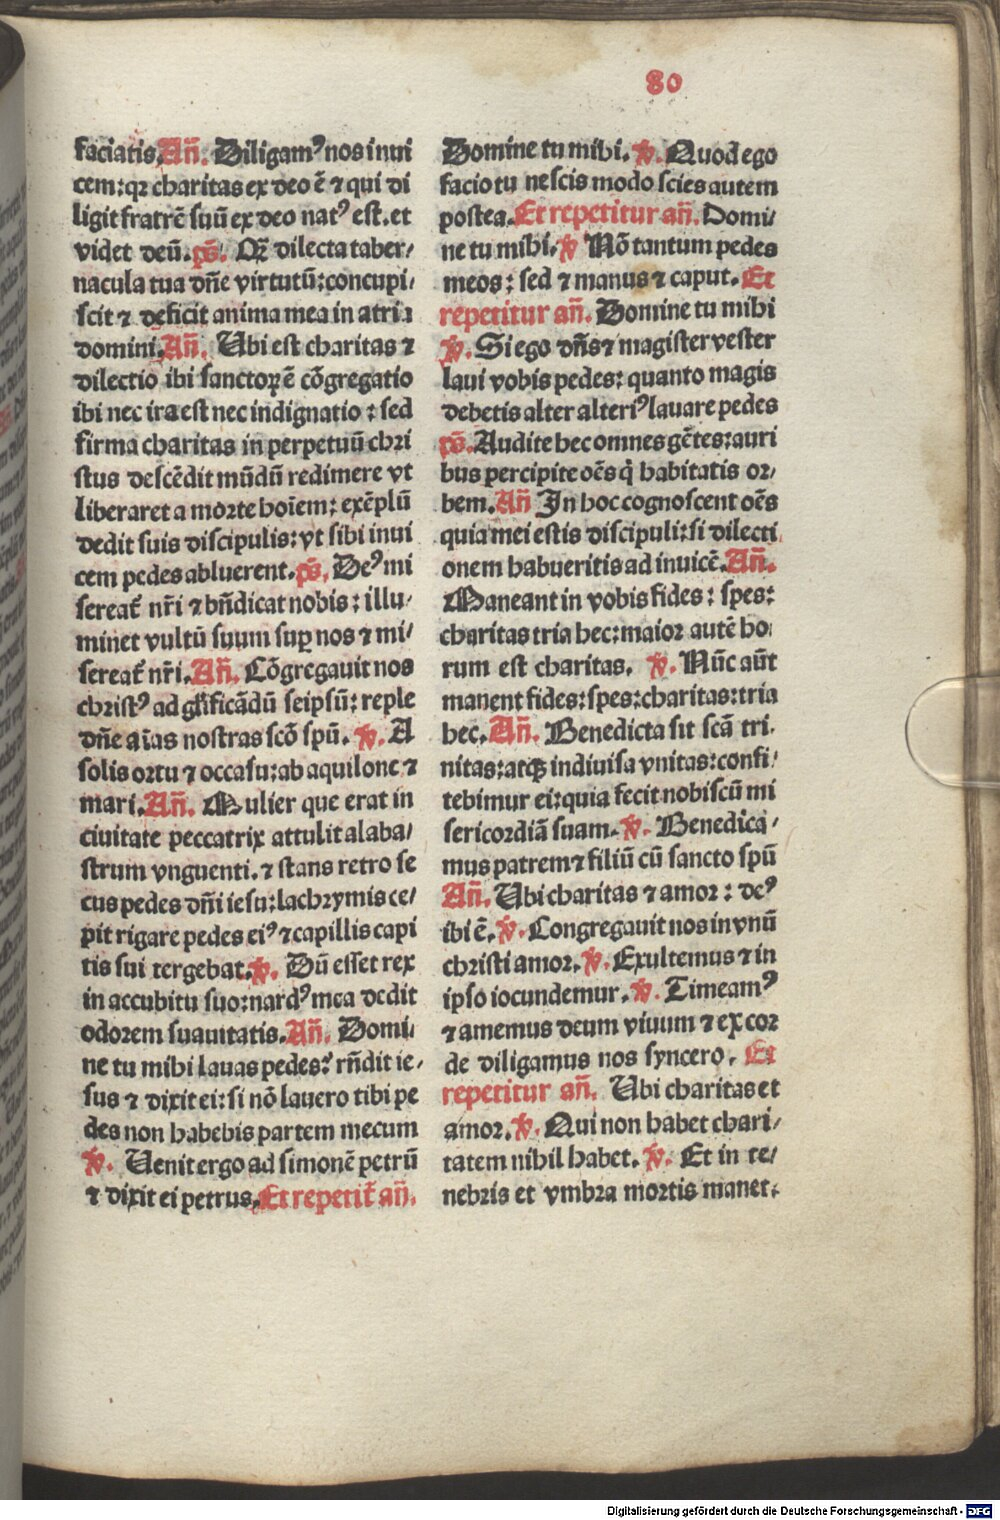 80
faciatis. Añ. Diligamꝰ nos inui
cem: qꝛ charitas ex deo ē ⁊ qui di
ligit fratrē suū ex deo natꝰ est. et
videt deū. p̄s. Qꝫ dilecta taber⸗
nacula tua dñe virtutū: concupi⸗
scit ⁊ deficit anima mea in atria
domini. Añ. Ubi est charitas ⁊
dilectio ibi sanctoꝝ ē cōgregatio
ibi nec ira est nec indignatio: sed
firma charitas in perpetuū chri
stus descēdit mūdū redimere vt
liberaret a morte hoīem: exēplū
dedit suis discipulis: vt sibi inui
cem pedes abluerent. p̄s. Deꝰ mi
sereat̄ nr̄i ⁊ bñdicat nobis: illu⸗
minet vultū suum suꝑ nos ⁊ mi⸗
sereat̄ nr̄i. Añ. Cōgregauit nos
christꝰ ad gl̄ificādū seipsū: reple
dñe aīas nostras scō spū. ℣. A
solis ortu ⁊ occasu: ab aquilone ⁊
mari. Añ. Mulier que erat in
ciuitate peccatrix attulit alaba⸗
strum vnguenti. ⁊ stans retro se
cus pedes dñi iesu: lachrymis ce⸗
pit rigare pedes eiꝰ ⁊ capillis capi
tis sui tergebat. ℣. Dū esset rex
in accubitu suo: nardꝰ mea dedit
odorem suauitatis. Añ. Domi⸗
ne tu mihi lauas pedes? rñdit ie⸗
sus ⁊ dixit ei: si nō lauero tibi pe
des non habebis partem mecum
℣. Uenit ergo ad simonē petrū
⁊ dixit ei petrus. Et repetit̄ añ.
Domine tu mihi. ℣. Quod ego
facio tu nescis modo scies autem
postea. Et repetitur añ. Domi⸗
ne tu mihi. ℣ Nō tantum pedes
meos: sed ⁊ manus ⁊ caput. Et
repetitur añ. Domine tu mihi
℣. Si ego dñs ⁊ magister vester
laui vobis pedes: quanto magis
debetis alter alteriꝰ lauare pedes
p̄s. Audite hec omnes gētes: auri
bus percipite oēs q̄ habitatis or⸗
bem. Añ In hoc cognoscent oēs
quia mei estis discipuli: si dilecti
onem habueritis ad inuicē. Añ.
Maneant in vobis fides: spes:
charitas tria hec: maior autē ho⸗
rum est charitas. ℣. Nūc aūt
manent fides: spes: charitas: tria
hec. Añ. Benedicta sit scā tri⸗
nitas: atqꝫ indiuisa vnitas: confi⸗
tebimur ei: quia fecit nobiscū mi
sericordiā suam. ℣. Benedica⸗
mus patrem ⁊ filiū cū sancto spū
Añ. Ubi charitas ⁊ amor: deꝰ
ibi ē. ℣. Congregauit nos in vnū
christi amor. ℣. Exultemus ⁊ in
ipso iocundemur. ℣. Timeamꝰ
⁊ amemus deum viuum ⁊ ex cor
de diligamus nos syncero. Et
repetitur añ. Ubi charitas et
amor. ℣. Qui non habet chari⸗
tatem nihil habet. ℣. Et in te⸗
nebris et vmbra mortis manet.
Digitalisierung gefördert durch die Deutsche Forschungsgemeinschaft - DFG